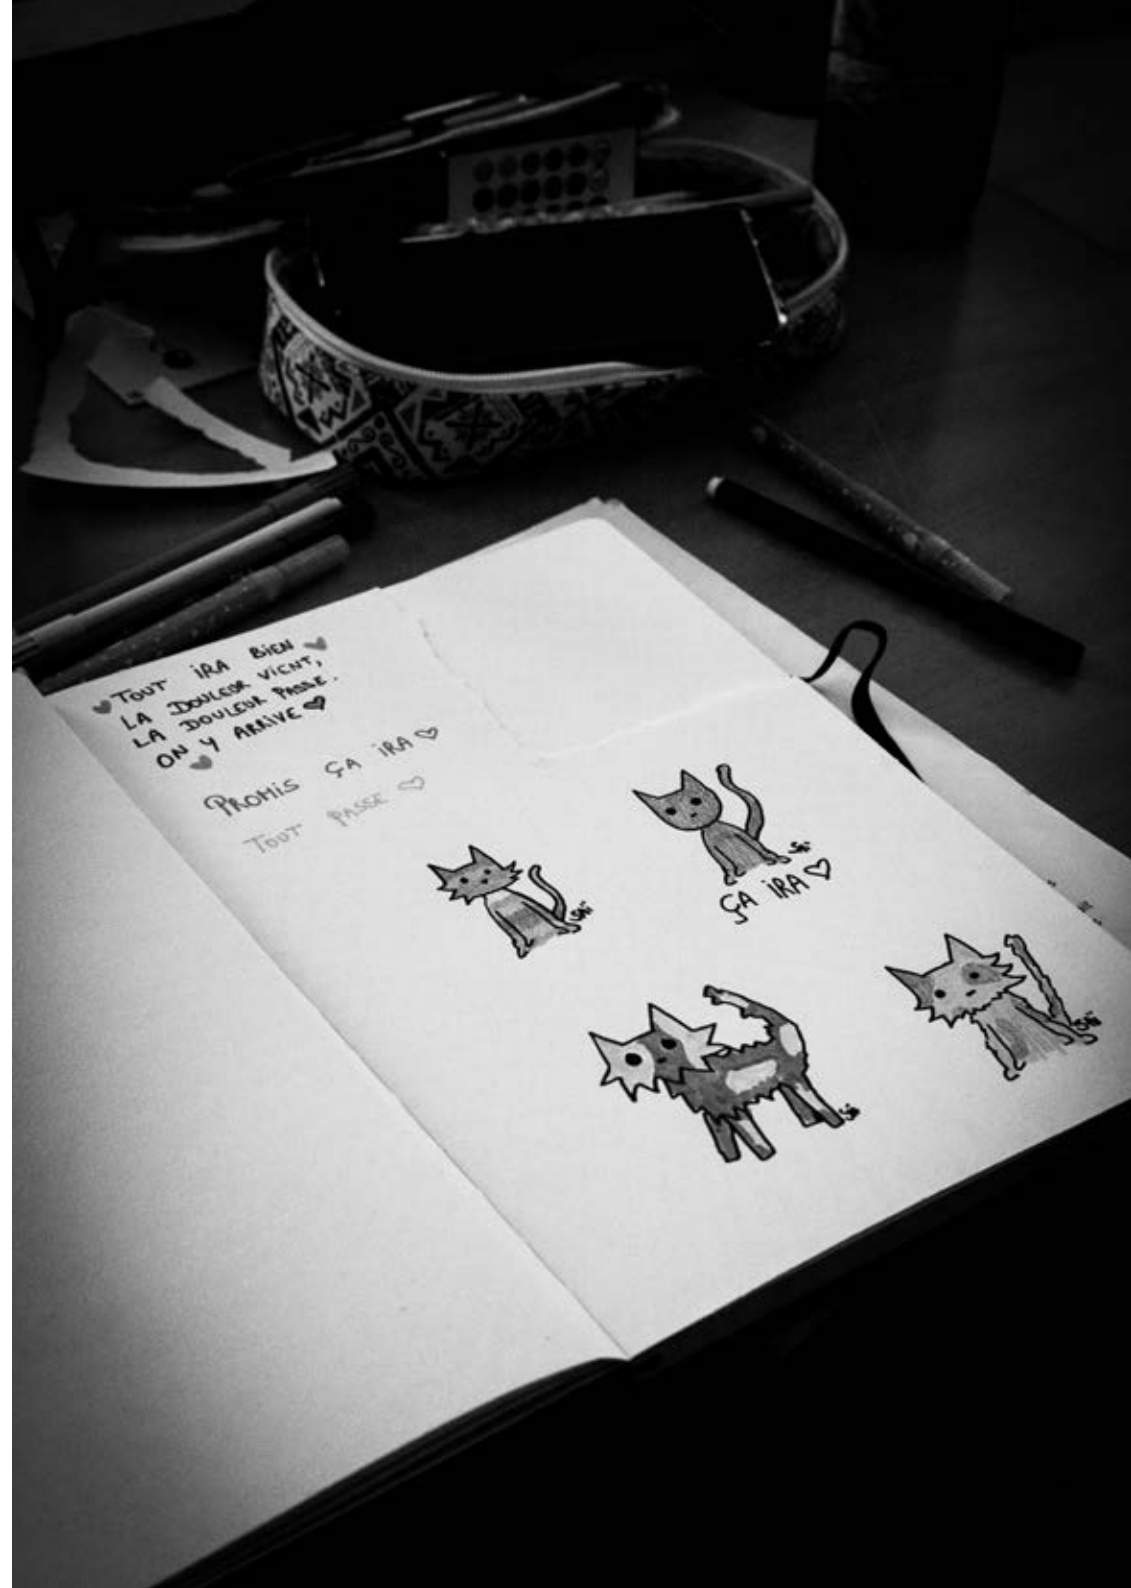 ♥ TOUT iRA BiEN ♥
LA DOULEUR ViENT,
LA DOULEUR PASSE.
ON Y ARRiVE ♥
♥
PROMiS ÇA iRA ♡
TOUT PASSE ♡
ÇA iRA ♡